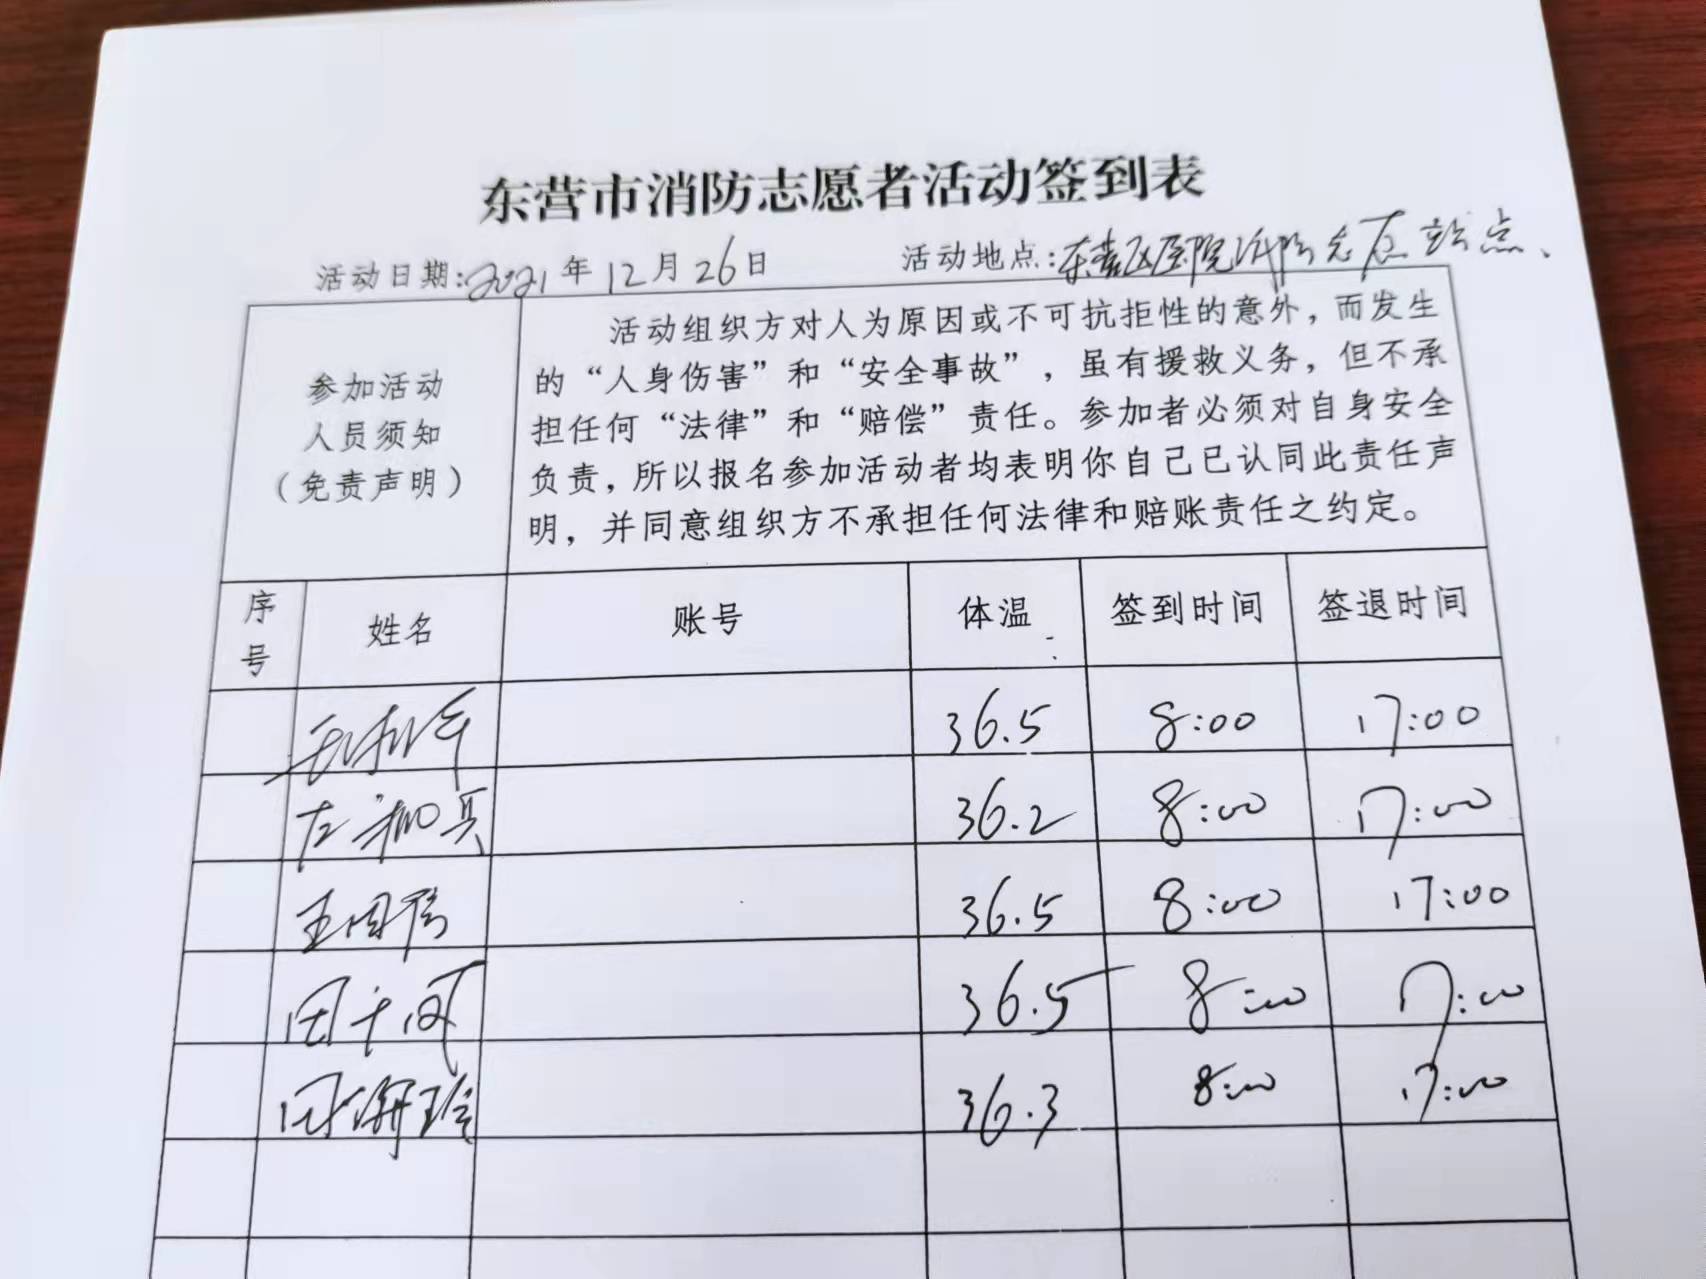 东营市消防志愿者活动签到表
活动日期:2021年12月26日 活动地点:东营区医院消防志愿站点、
参加活动
人员须知
(免责声明)
活动组织方对人为原因或不可抗拒性的意外，而发生
的“人身伤害”和“安全事故”，虽有援救义务，但不承
担任何“法律”和“赔偿”责任。参加者必须对自身安全
负责，所以报名参加活动者均表明你自己已认同此责任声
明，并同意组织方不承担任何法律和赔账责任之约定。
序号 姓名 账号 体温 签到时间 签退时间
36.5 8:00 17:00
36.2 8:00 17:00
36.5 8:00 17:00
36.5 8:00 17:00
36.3 8:00 17:00